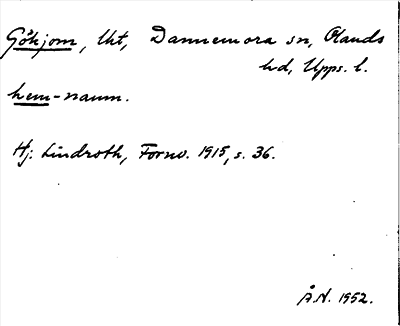 Gökjom, lht, Dannemora sn, Olands
hd, Upps. l.
hem-namn.
Hj. Lindroth, Fornv. 1915, s. 36.
Å.N. 1952.